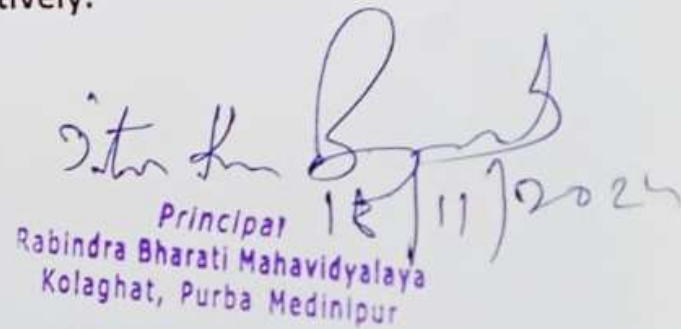 tively.
18/11/2024
Principal
Rabindra Bharati Mahavidyalaya
Kolaghat, Purba Medinipur